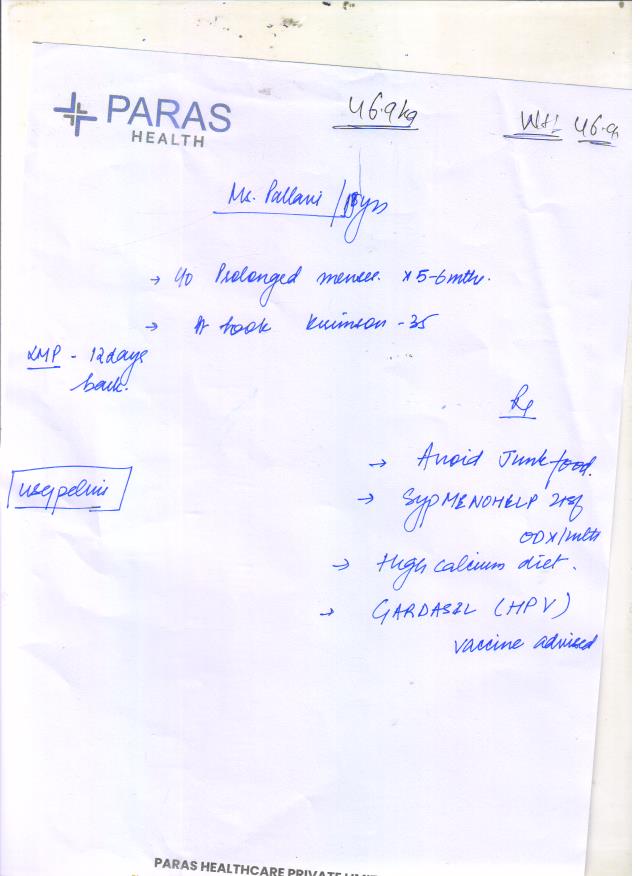 PARAS
HEALTH
46.9kg
Wt: 46.9
Ms. Pallavi / yrs
→ Prolonged menses x 5-6 mths.
→ took Krimson - 35
LMP - 12 days
back.
Rx
→ Avoid Junk food.
USG pelvis
→ Syp MENOHELP 2tsf
OD x 1 mth
→ High calcium diet.
→ GARDASIL (HPV)
vaccine advised
PARAS HEALTHCARE PRIVATE